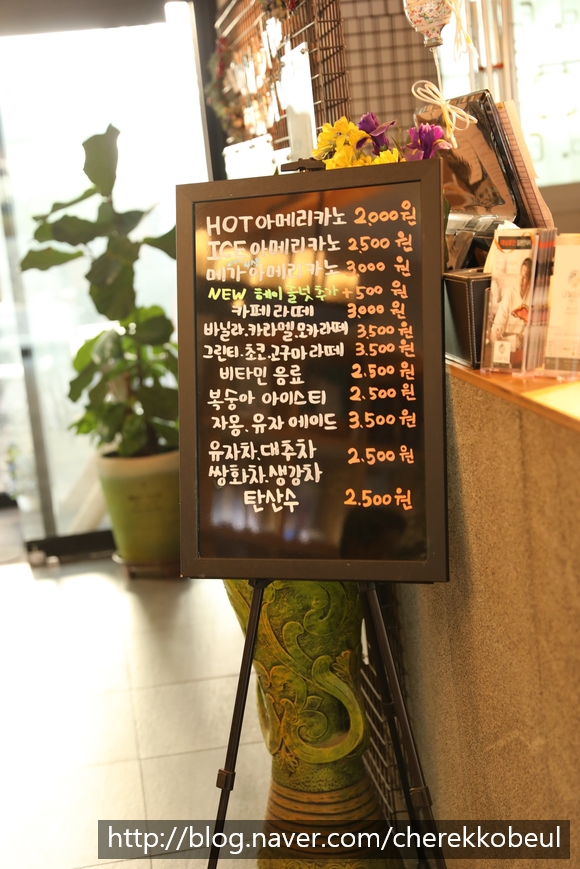 HOT 아메리카노 2,000원
ICE 아메리카노 2,500원
메가 아메리카노 3,000원
NEW 헤이즐넛 추가 +500원
카페라떼 3,000원
바닐라.카라멜.모카라떼 3,500원
그린티.초코.고구마라떼 3.500원
비타민 음료 2.500원
복숭아 아이스티 2.500원
자몽.유자 에이드 3.500원
유자차.대추차 2.500원
쌍화차.생강차
탄산수 2.500원
http://blog.naver.com/cherekkobeul